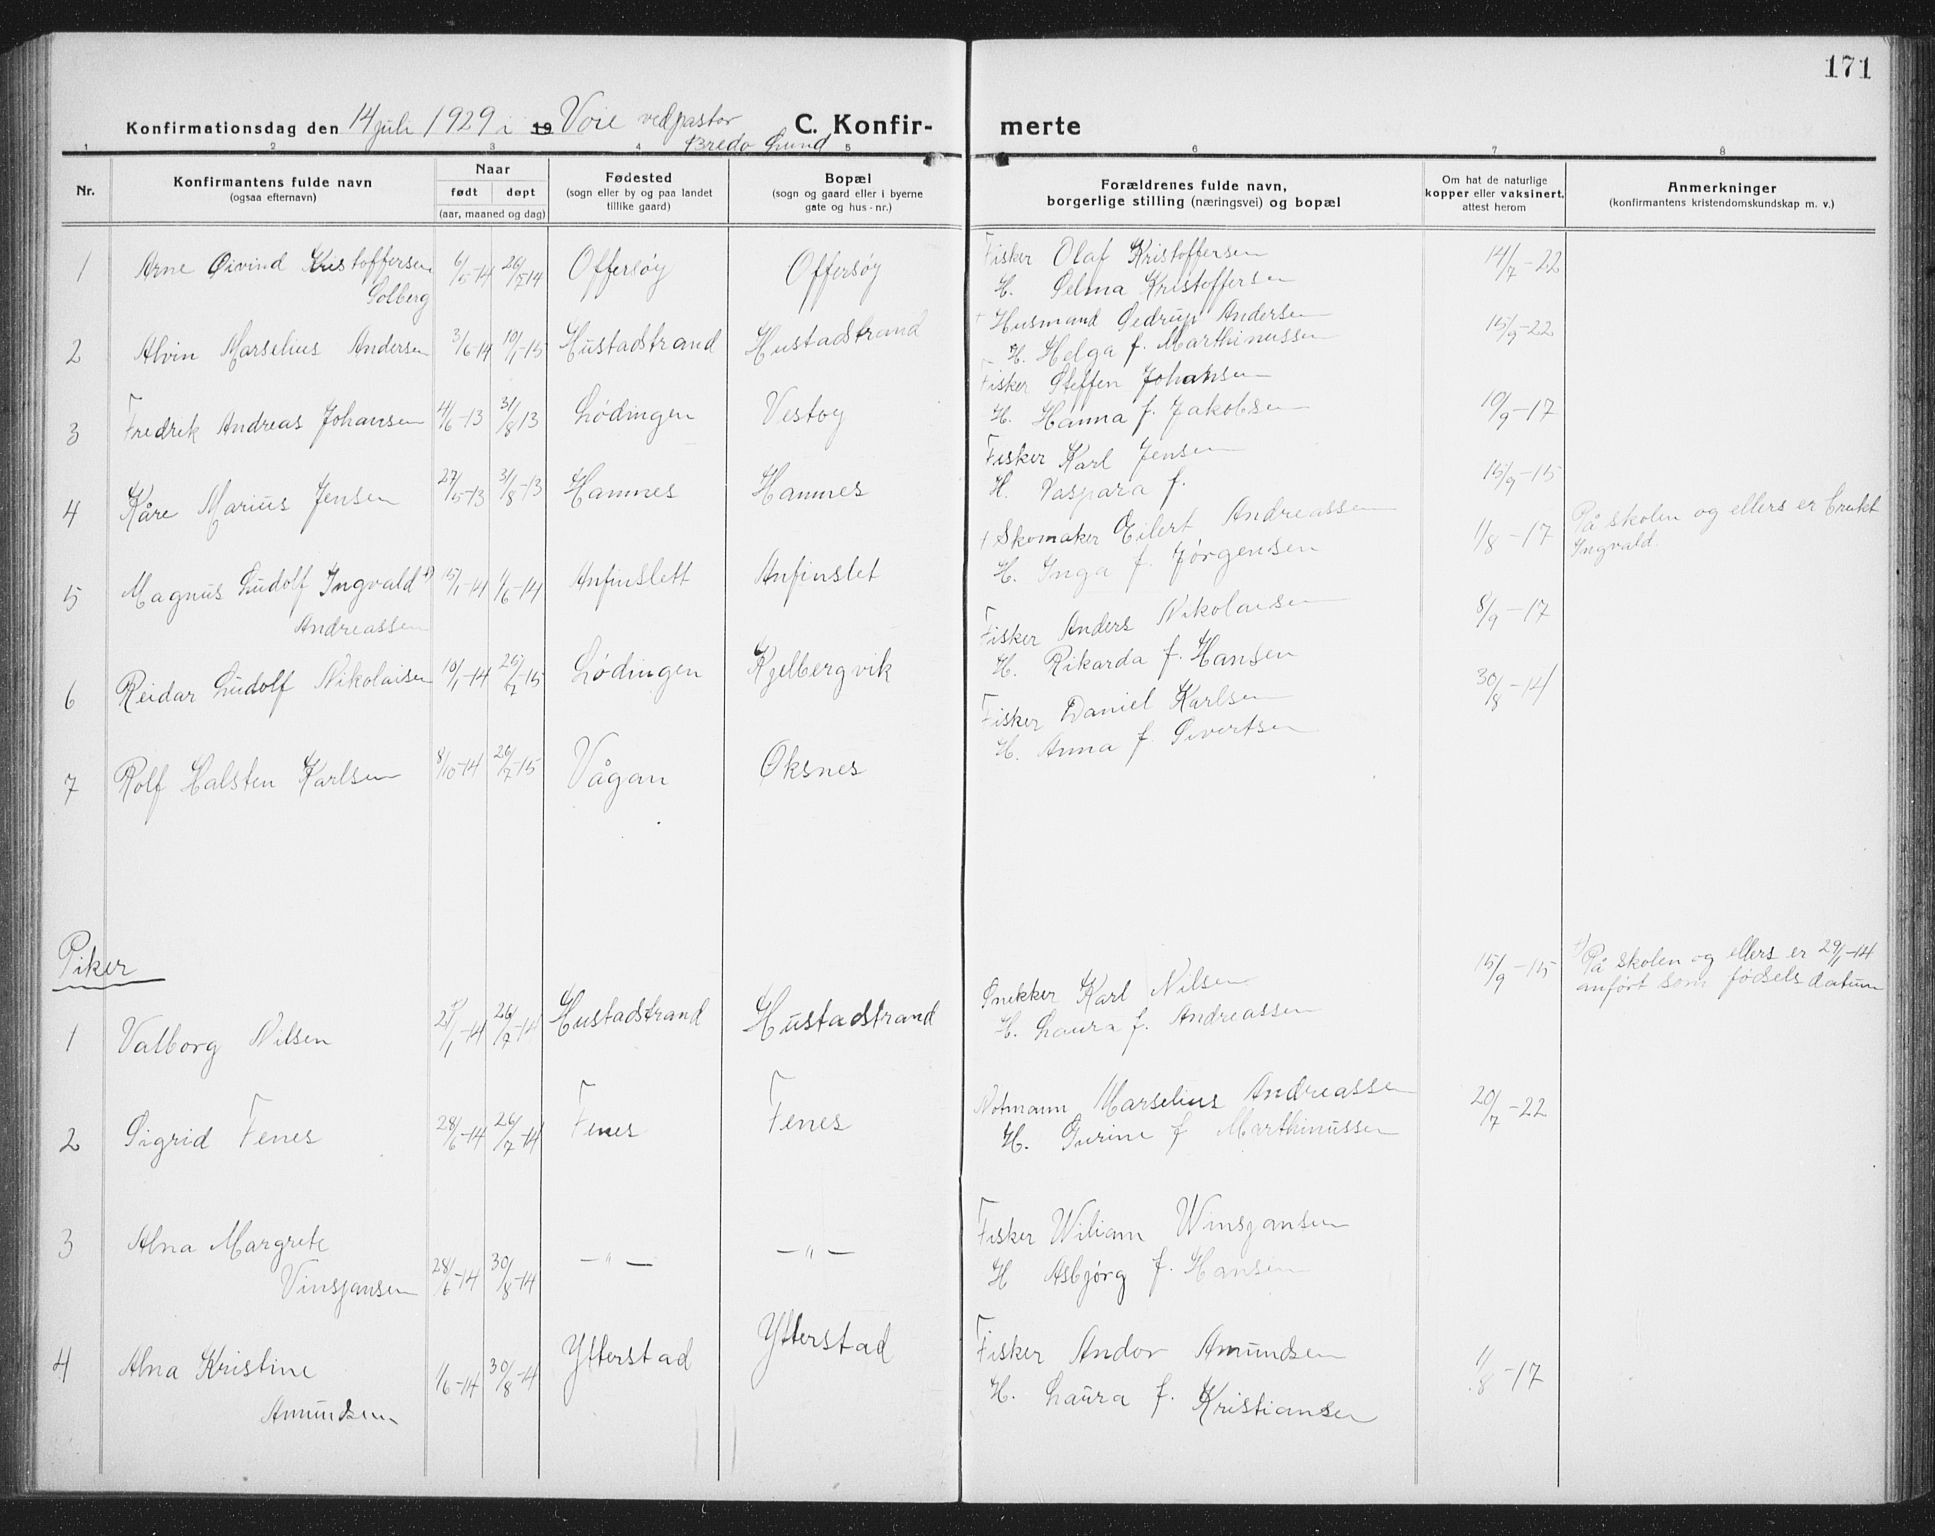 171
Konfirmationsdag den 14 juli 1929 i 19 Voie ved pastor
Bredo Lund
C. Konfirmerte
1 2 3 4 5 6 7 8
Nr.
Konfirmantens fulde navn
(ogsaa efternavn)
Naar
født døpt
(aar, maaned og dag)
Fødested
(sogn eller by og paa landet
tillike gaard)
Bopæl
(sogn og gaard eller i byerne
gate og hus-nr.)
Forældrenes fulde navn,
borgerlige stilling (næringsvei) og bopæl
Om hat de naturlige
kopper eller vaksinert,
attest herom
Anmerkninger
(konfirmantens kristendomskundskap m. v.)
1 Arne Øivind Kristoffersen 6/5-14 26/7 14 Offersøy Offersøy Fisker Olaf Kristoffersen 14/7-22
Solberg H. Selma Kristoffersen
2 Alvin Marselius Andersen 3/6 14 10/1-15 Hustadstrand Hustadstrand + Husmand Sedrup Andersen 15/9-22
H. Helga f. Marthinussen
3 Fredrik Andreas Johansen 4/6-13 31/8 13 Lødingen Vestoy Fisker Steffen Johansen 10/9-17
H. Hanna f. Jakobsen
4 Kåre Marius Jensen 27/5-13 31/8-13 Hamnes Hamnes Fisker Karl Jensen 15/9-15
H. Vaspara f.
5 Magnus Ludolf Ingvald +) 15/1-14 1/6-14 Anfinslett Anfinslet + Skomaker Eilert Andreassen 1/8-17 På skolen og ellers er brukt
Andreassen H. Inga f. Jørgensen Ingvald
6 Reidar Ludolf Nikolaisen 10/1-14 26/7-15 Lødingen Kjelbergvik Fisker Anders Nikolaisen 8/9-17
H. Rikarda f. Hansen
7 Rolf Halsten Karlsen 8/10-14 26/7-15 Vågan Oksnes Fisker Daniel Karlsen 30/8-14
H. Anna f. Sivertsen
Piker
1 Valborg Nilsen /1-14 26/7-14 Hustadstrand Hustadstrand Snekker Karl Nilsen 15/9-15 +) På skolen og ellers er 29/1-14
H. Laura f. Andreassen anført som fødselsdatum
2 Sigrid Fenes 28/6-14 26/7-14 Fenes Fenes Notmann Marselius Andreassen 20/7-22
H. Gurine f Marthinussen
3 Alna Margrete
Vinsjansen 28/6-14 30/8-14 – " – – " – Fisker Wiliam Winsjansen
H Asbjørg f. Hansen
4 Alna Kristine 1/6-14 30/8-14 Ytterstad Ytterstad Fisker Andor Amundsen 11/8-17
Amundsen H. Laura f. Kristiansen